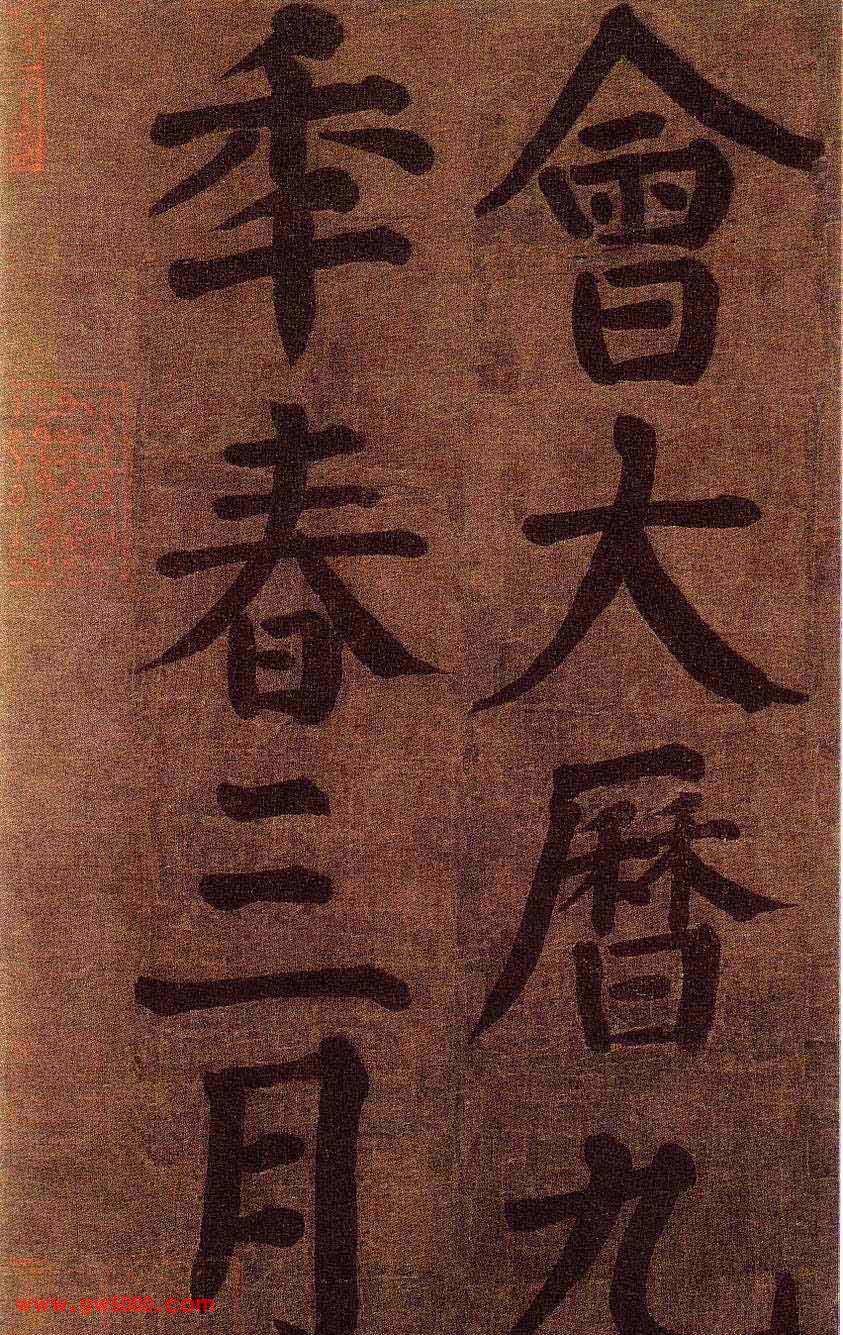 會大曆九
秊春三月
www.gw5000.com